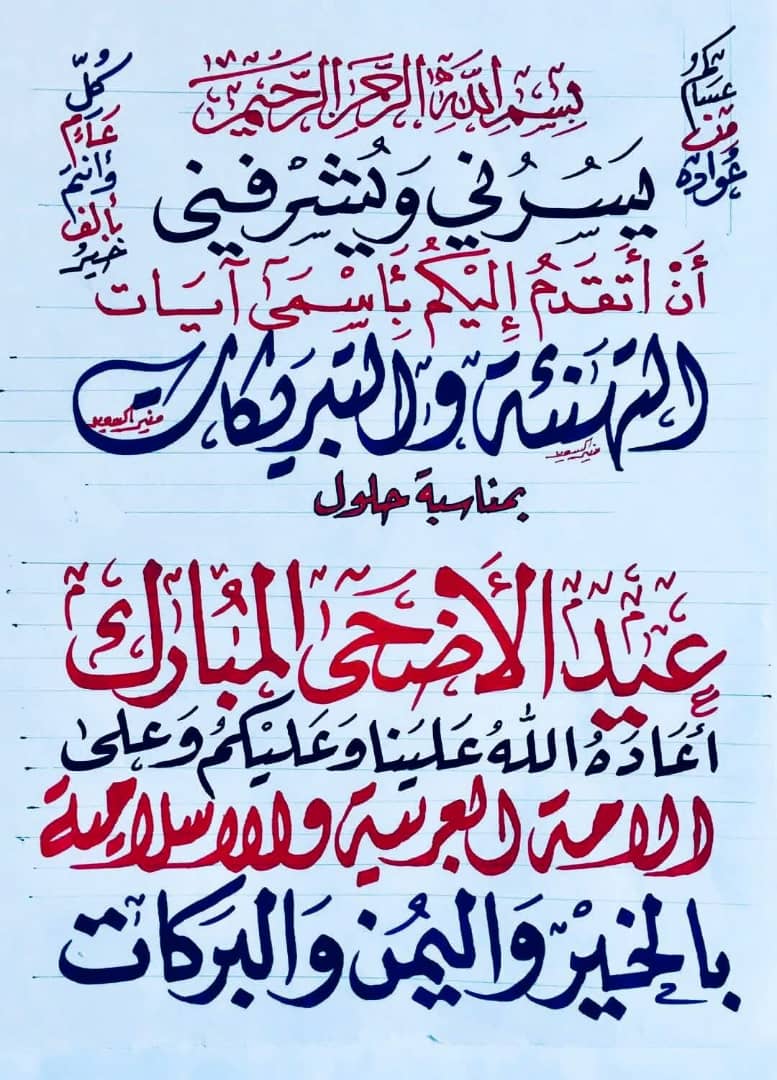 بِسْمِ اللَّهِ الرَّحْمَنِ الرَّحِيمِ
عساكم
من
عواده
كل
عام
وأنتم
بألف
خير
يَسُرُني وَيُشرفيني
أَنْ أَتَقَدَمُ إِلَيْكُمُ بِأَسْمَى آيَات
التهنئة والتبريكات
منير السعيد
منير السعيد
بمناسبة حلول
عيد الأضحى المُبارك
أعَادَهُ اللهُ عَلَيَنا وَعَليْكمُ وَعلىٰ
الامة العربية والاسلامية
بالخيْر وَاليمُن وَالبَركات